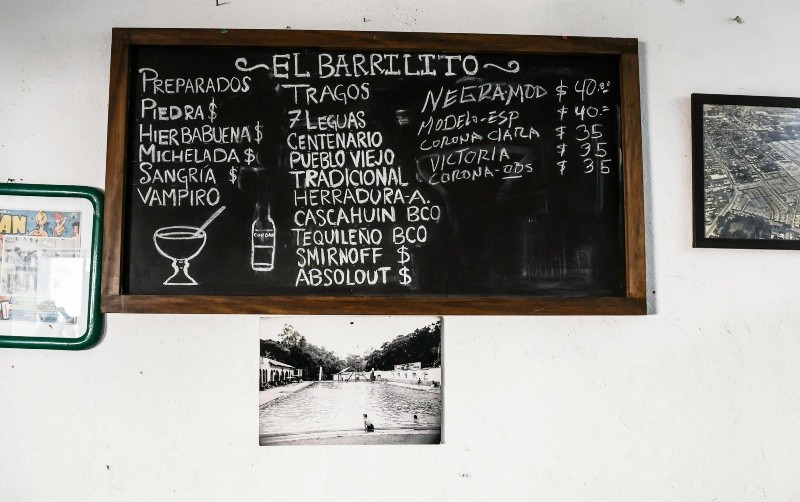 EL BARRILITO
PREPARADOS
PIEDRA $
HIERBABUENA $
MICHELADA $
SANGRIA $
VAMPIRO
TRAGOS
7 LEGUAS
CENTENARIO
PUEBLO VIEJO
TRADICIONAL
HERRADURA-A.
CASCAHUIN BCO
TEQUILEÑO BCO
SMIRNOFF $
ABSOLOUT $
NEGRA MOD $ 40.00
MODELO-ESP $ 40.=
CORONA CLARA $ 35
VICTORIA $ 35
CORONA-ODS $ 35
AN